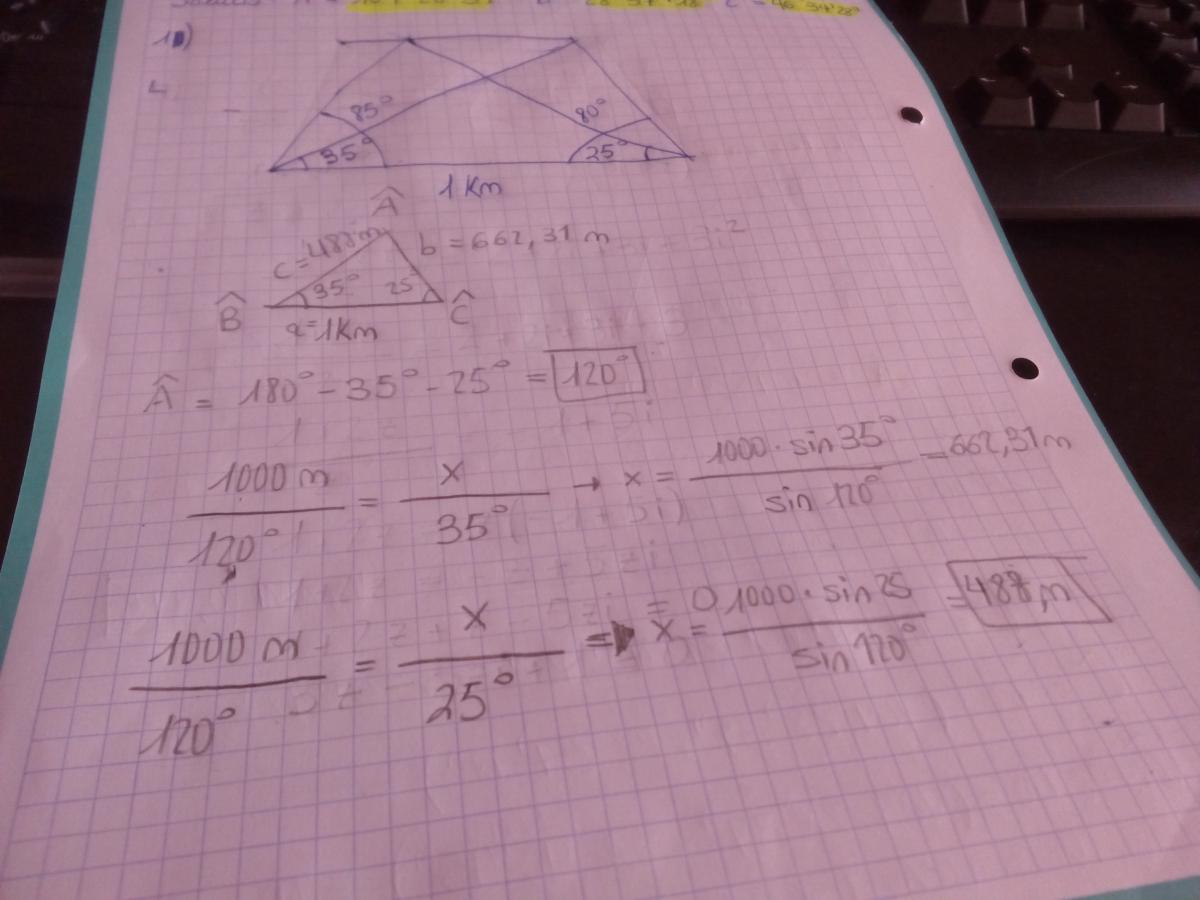 1)
85° 80°
35° 25°
1 Km
Â
c = 488 m b = 662,31 m
35° 25
B̂ Ĉ
a = 1 Km
Â = 180° - 35° - 25° = 120°
1000 m / 120° = x / 35° → x = 1000 · sin 35° / sin 120° = 662,31 m
1000 m / 120° = x / 25° => x = 1000 · sin 25 / sin 120° = 488, m